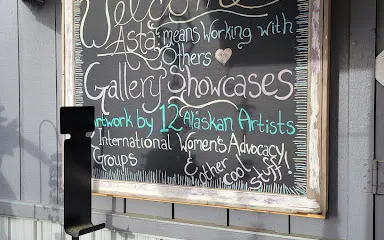 Welcome
Asta: means Working with
Others
Gallery Showcases
Artwork by 12 Alaskan Artists
International Women's Advocacy
Groups
& other
cool stuff!